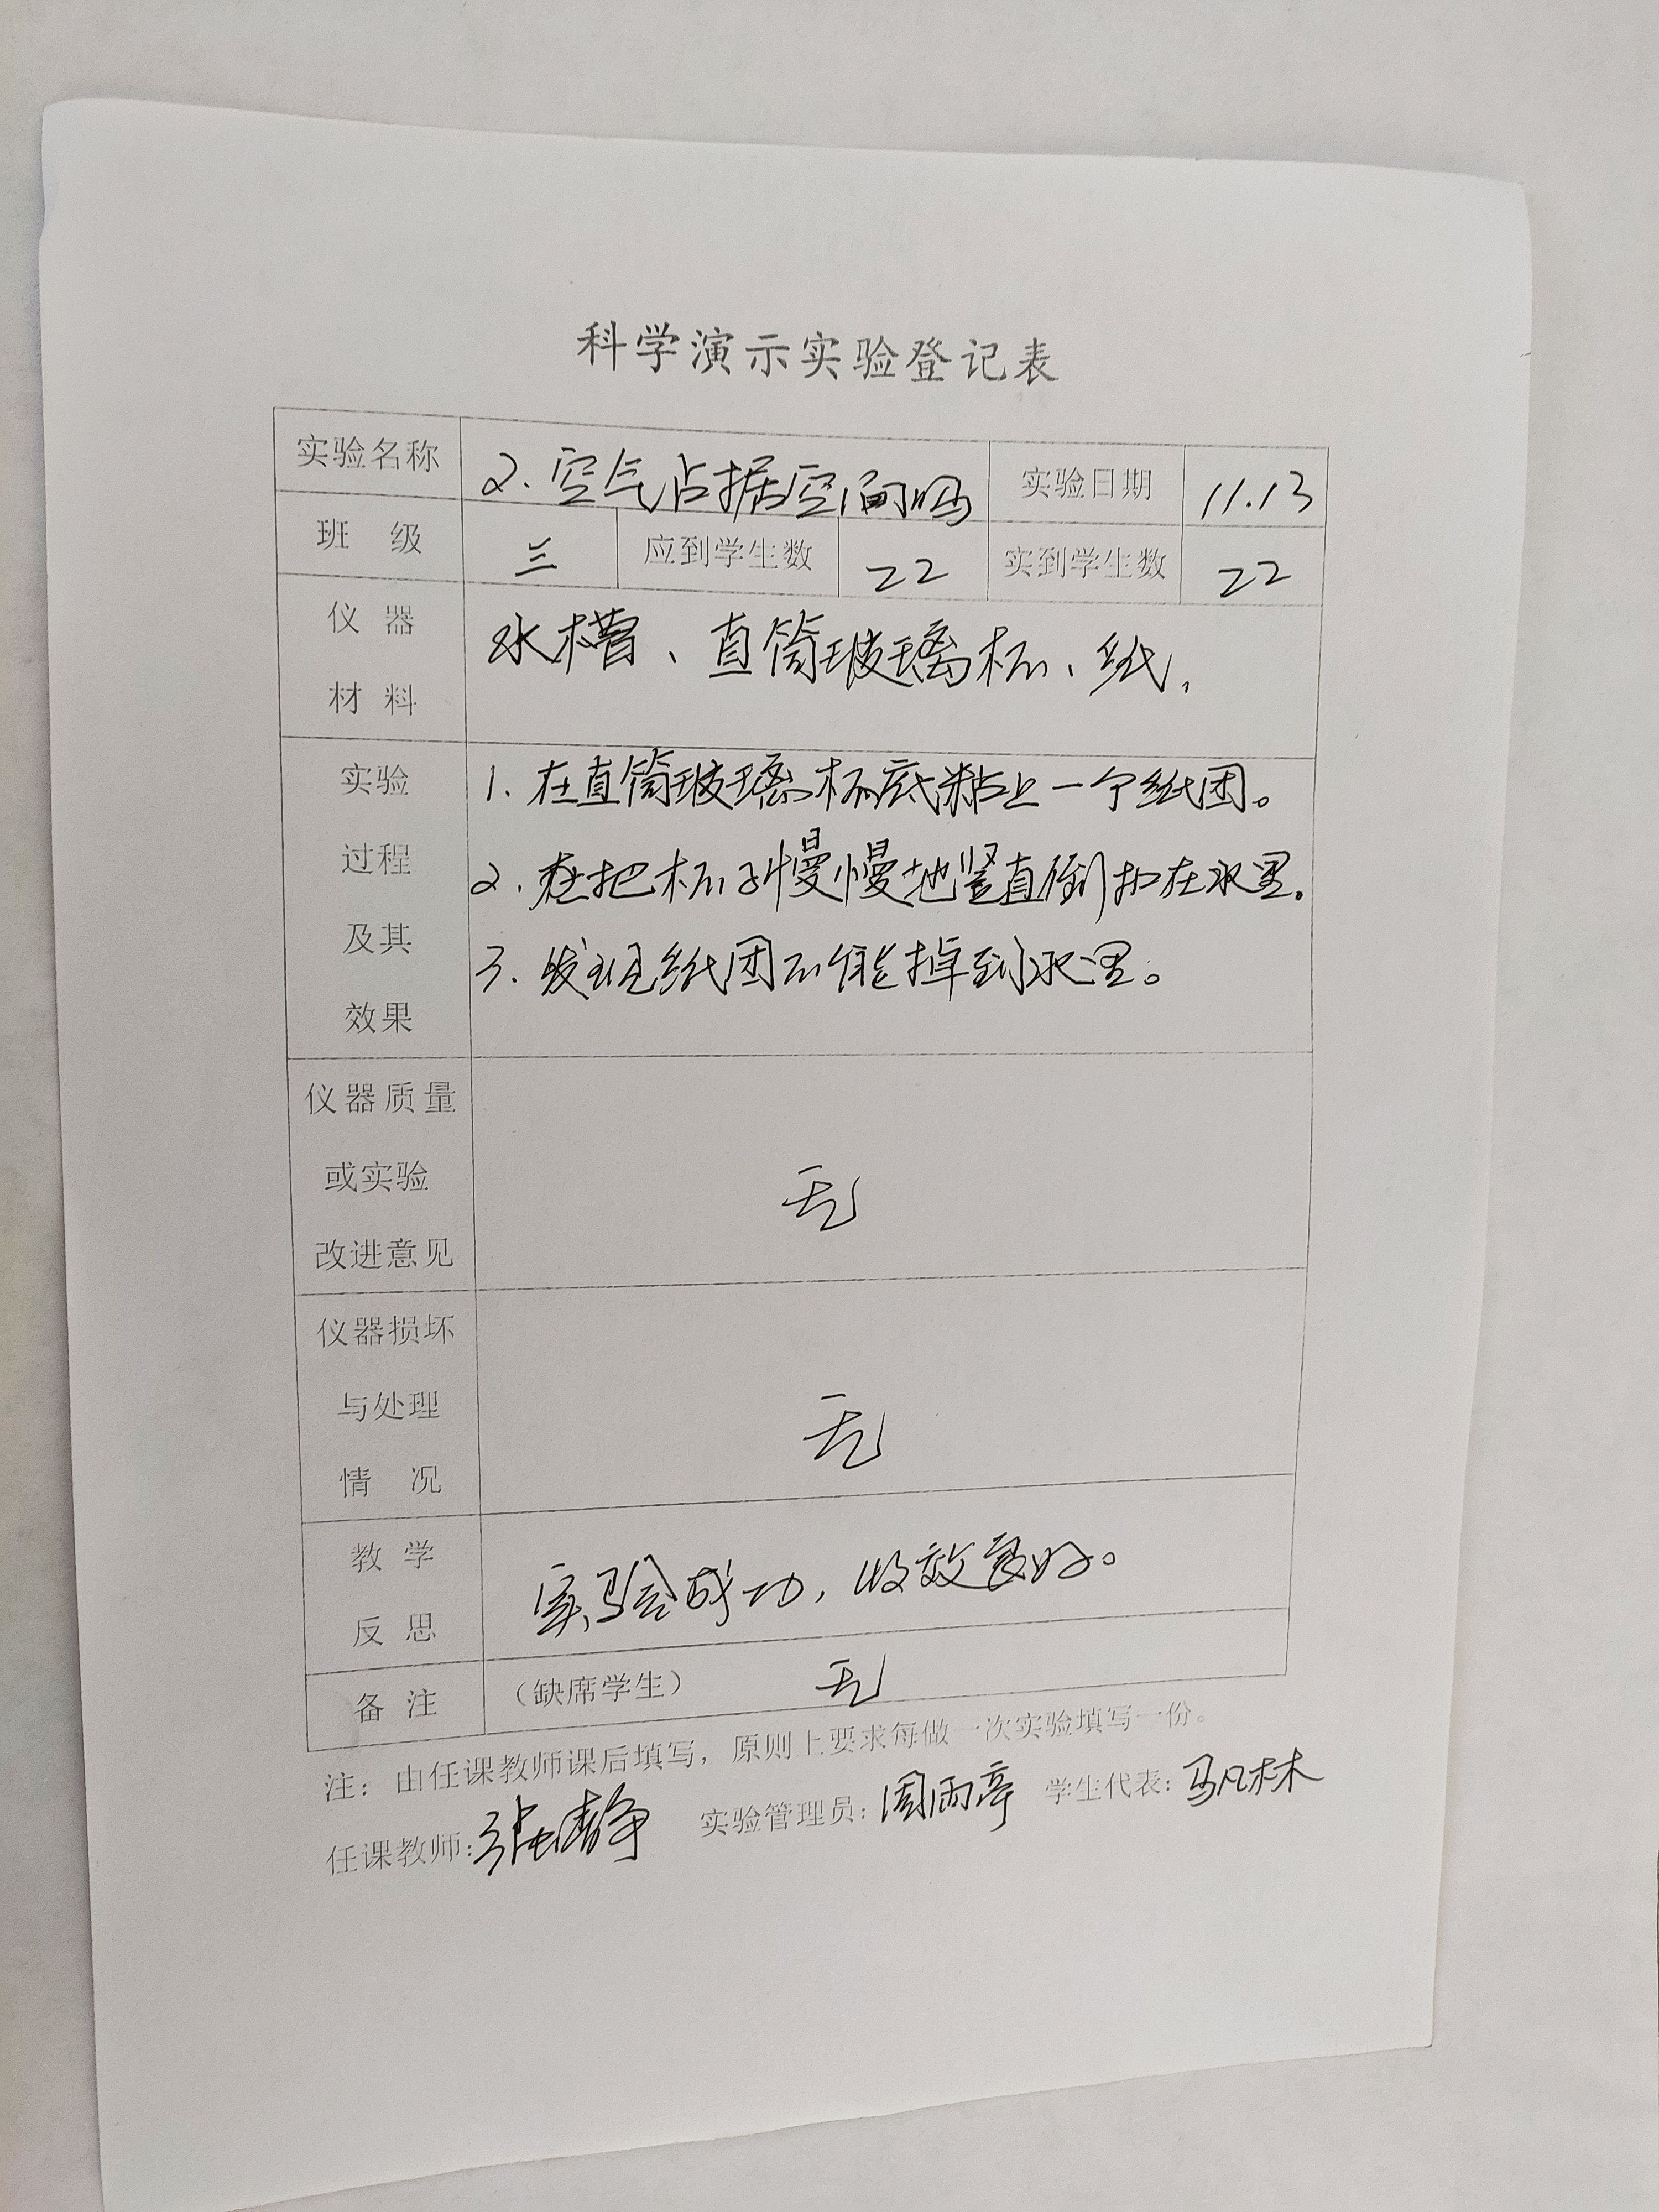 科学演示实验登记表
实验名称 2.空气占据空间吗 实验日期 11.13
班 级 三 应到学生数 22 实到学生数 22
仪 器
材 料
水槽、直筒玻璃杯、纸,
实验
过程
及其
效果
1.在直筒玻璃杯底粘上一个纸团。
2.把杯子慢慢地竖直倒扣在水里.
3.发现纸团不能掉到水里。
仪器质量
或实验
改进意见
无
仪器损坏
与处理
情 况
无
教 学
反 思
实验成功,收效良好。
备 注 (缺席学生) 无
注:由任课教师课后填写,原则上要求每做一次实验填写一份。
任课教师:张静 实验管理员:周雨亭 学生代表:马凡林